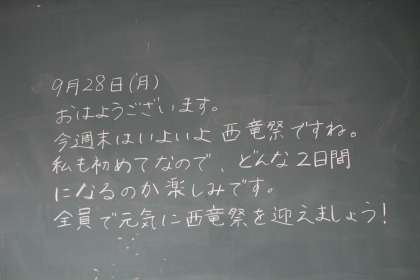 9月28日(月)
おはようございます。
今週末はいよいよ西竜祭ですね。
私も初めてなので、どんな2日間
になるのか楽しみです。
全員で元気に西竜祭を迎えましょう!